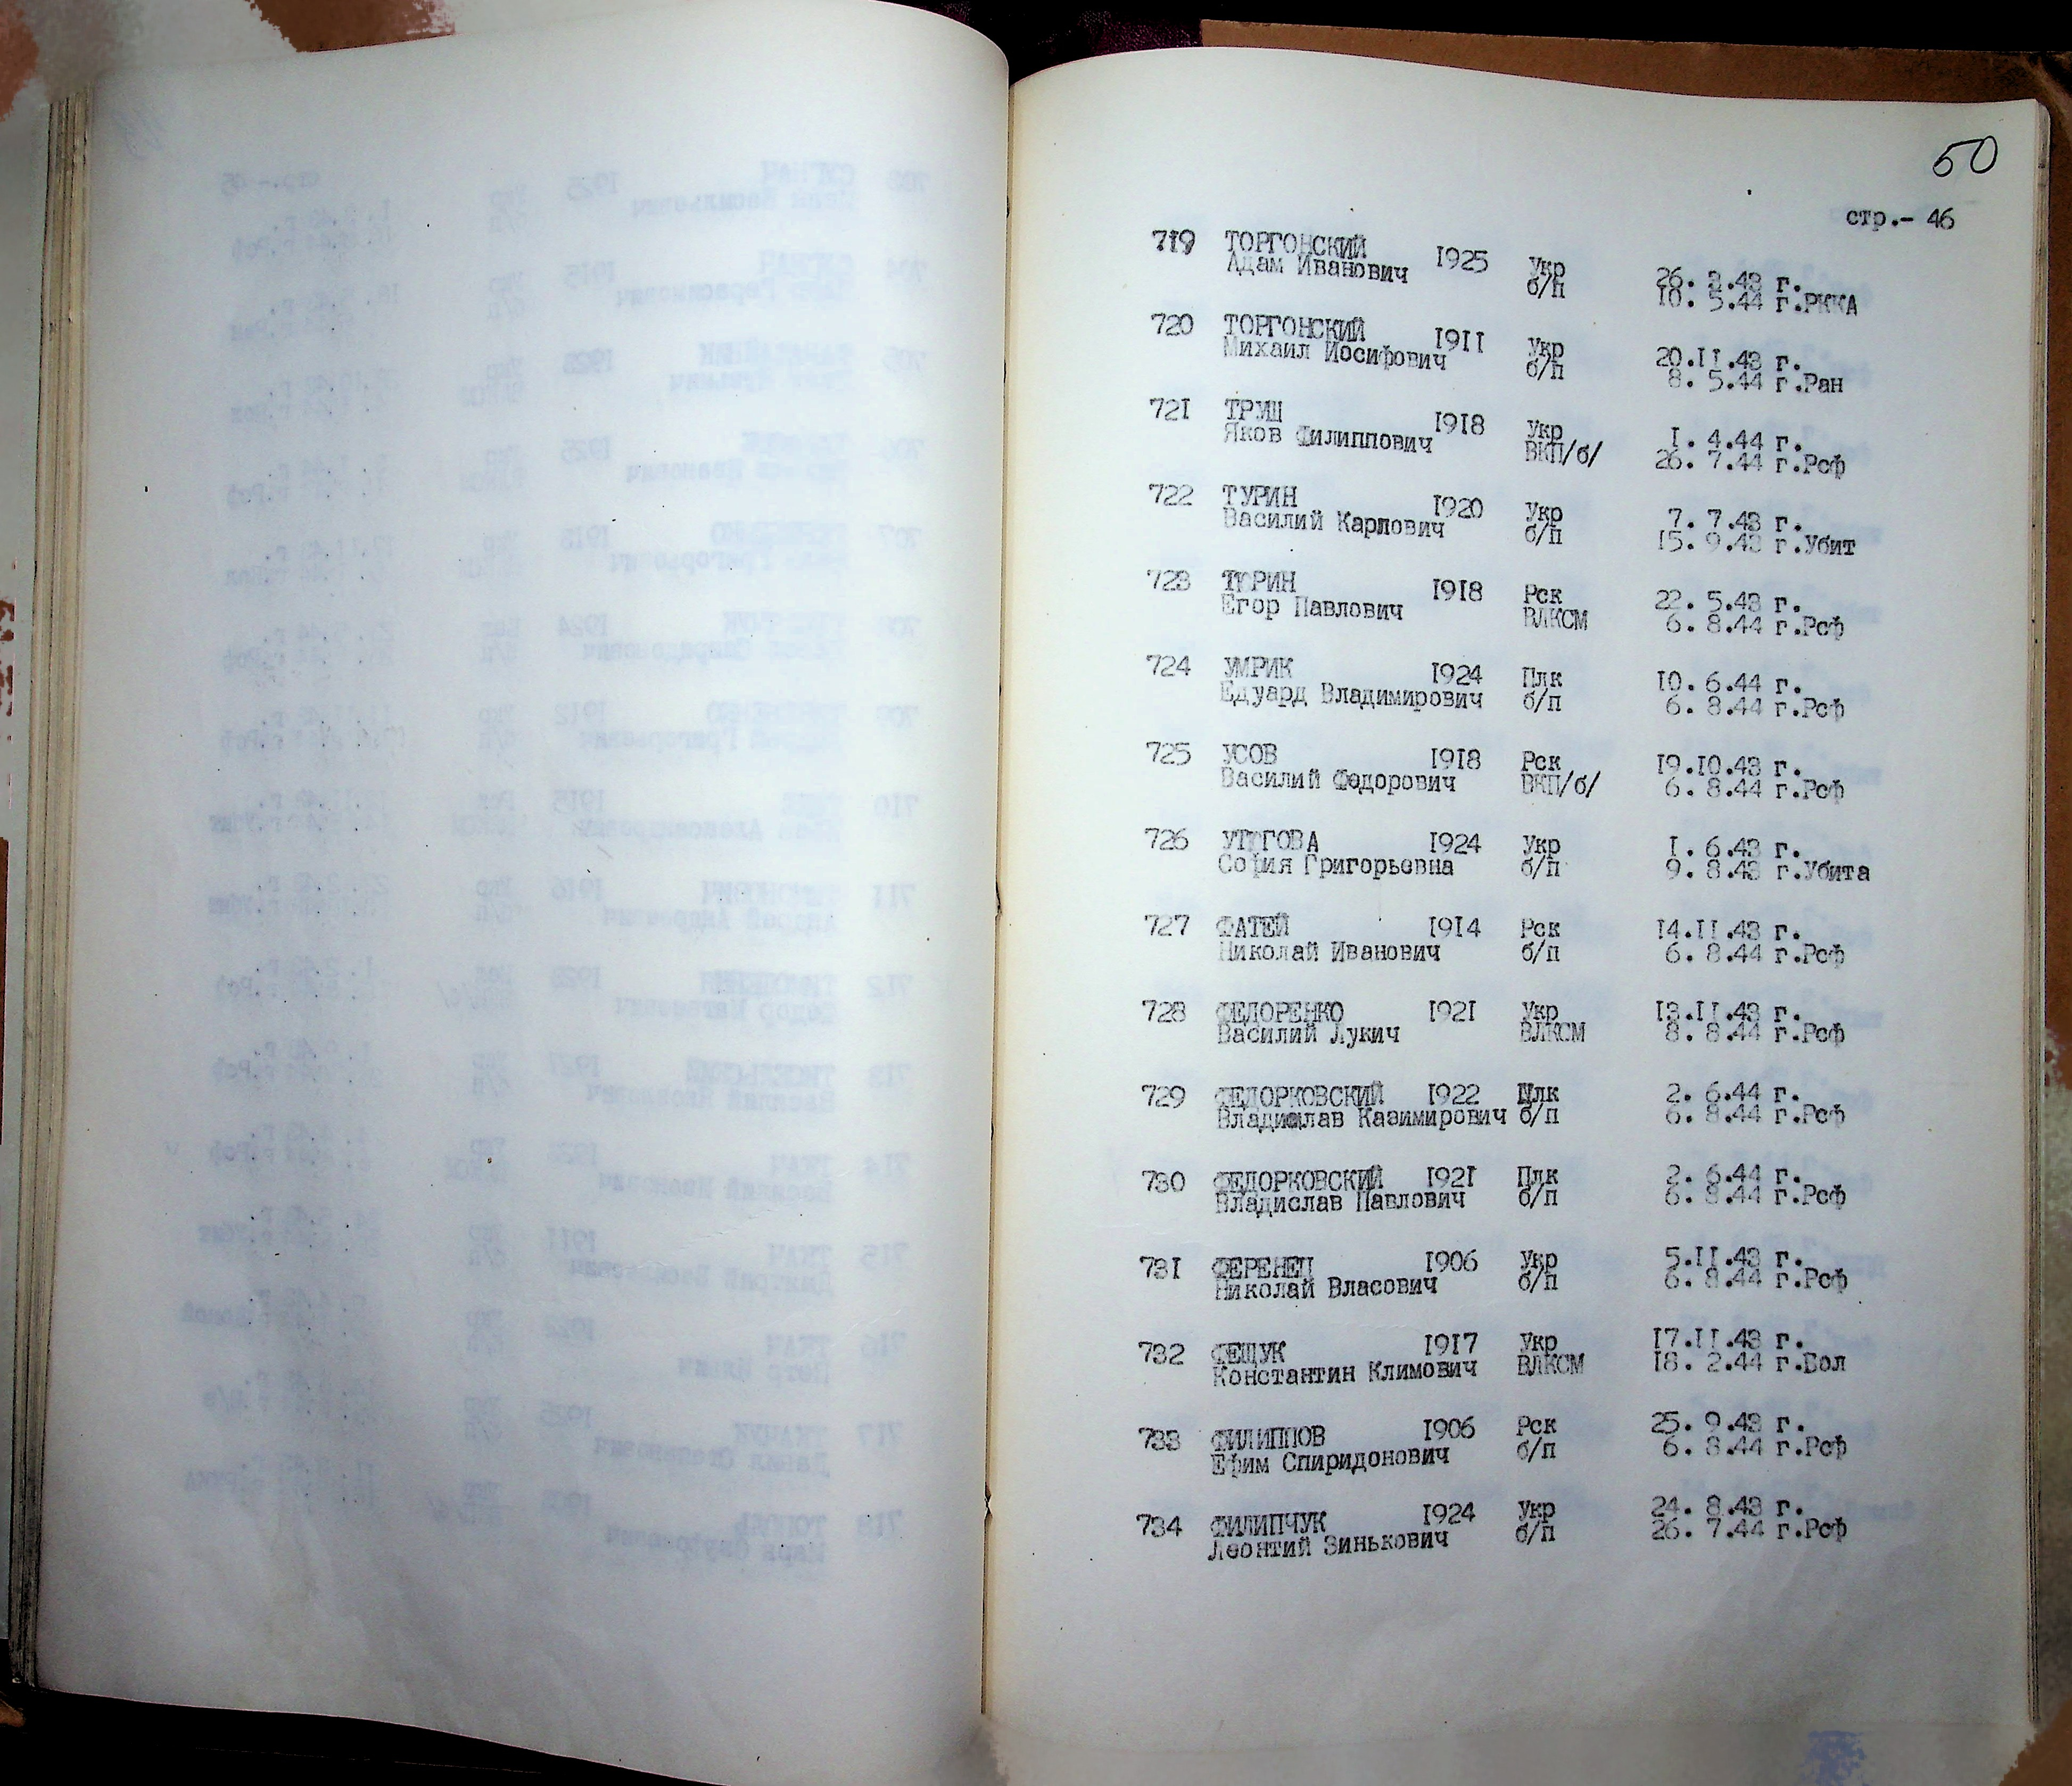 50
стр.- 46
719 ТОРГОНСКИЙ 1925 Укр 26. 3.43 г.
Адам Иванович б/п 10. 5.44 г.РККА
720 ТОРГОНСКИЙ 1911 Укр 20.11.43 г.
Михаил Иосифович б/п 8. 5.44 г.Ран
721 ТРУШ 1918 Укр 1. 4.44 г.
Яков Филиппович ВКП/б/ 26. 7.44 г.Рсф
722 ТУРИН 1920 Укр 7. 7.43 г.
Василий Карлович б/п 15. 9.43 г.Убит
723 ТЮРИН 1918 Рск 22. 5.43 г.
Егор Павлович ВЛКСМ 6. 8.44 г.Рсф
724 УМРИК 1924 Плк 10. 6.44 г.
Едуард Владимирович б/п 6. 8.44 г.Рсф
725 УСОВ 1918 Рск 19.10.43 г.
Василий Федорович ВКП/б/ 6. 8.44 г.Рсф
726 1924 Укр 1. 6.43 г.
София Григорьевна б/п 9. 8.43 г.Убита
727 ФАТЕЙ 1914 Рск 14.11.43 г.
Николай Иванович б/п 6. 8.44 г.Рсф
728 ФЕДОРЕНКО 1921 Укр 13.11.43 г.
Василий Лукич ВЛКСМ 8. 8.44 г.Рсф
729 ФЕДОРКОВСКИЙ 1922 Плк 2. 6.44 г.
Владислав Казимирович б/п 6. 8.44 г.Рсф
730 ФЕДОРКОВСКИЙ 1921 Плк 2. 6.44 г.
Владислав Павлович б/п 6. 8.44 г.Рсф
731 ФЕРЕНЕЦ 1906 Укр 5.11.43 г.
Николай Власович б/п 6. 8.44 г.Рсф
732 ФЕЩУК 1917 Укр 17.11.43 г.
Константин Климович ВЛКСМ 18. 2.44 г.Бол
733 ФИЛИППОВ 1906 Рск 25. 9.43 г.
Ефим Спиридонович б/п 6. 8.44 г.Рсф
734 ФИЛИПЧУК 1924 Укр 24. 8.43 г.
Леонтий Зинькович б/п 26. 7.44 г.Рсф